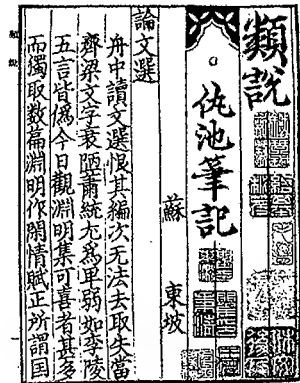 類説
仇池筆記
蘇 東坡
論文選
舟中讀文選恨其編次无法去取失當
齊梁文字衰陋蕭統尤為卑弱如李陵
五言皆偽今日觀淵明集可喜者甚多
而獨取数篇淵明作閑情賦正所謂国